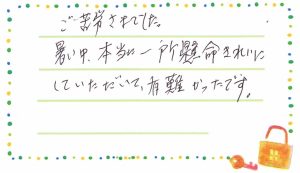 ご苦労さまでした。
暑い中、本当に一所懸命きれいに
していただいて、有難かったです。